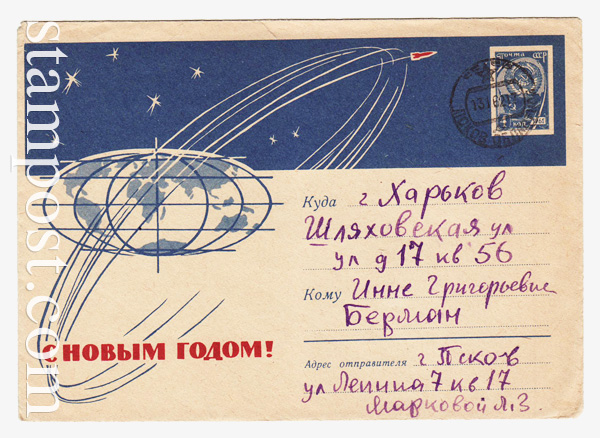 stampost.com
ПОЧТА СССР
Куда г Харьков
Шляховская ул
ул д 17 кв 56
Кому Инне Григорьевне
Берман
С НОВЫМ ГОДОМ!
Адрес отправителя г Псков
ул Ленина 7 кв 17
Марковой Л.З.